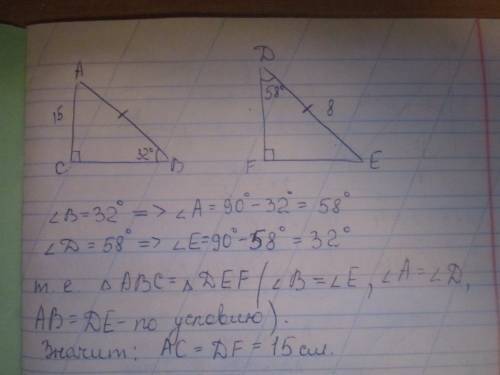 A
D
15
58°
8
C
32°
B
F
E
∠B=32° => ∠A=90°-32°=58°
∠D=58° => ∠E=90°-58°=32°
т.е △ABC=△DEF (∠B=∠E, ∠A=∠D,
AB=DE-по условию).
Значит: AC=DF=15см.